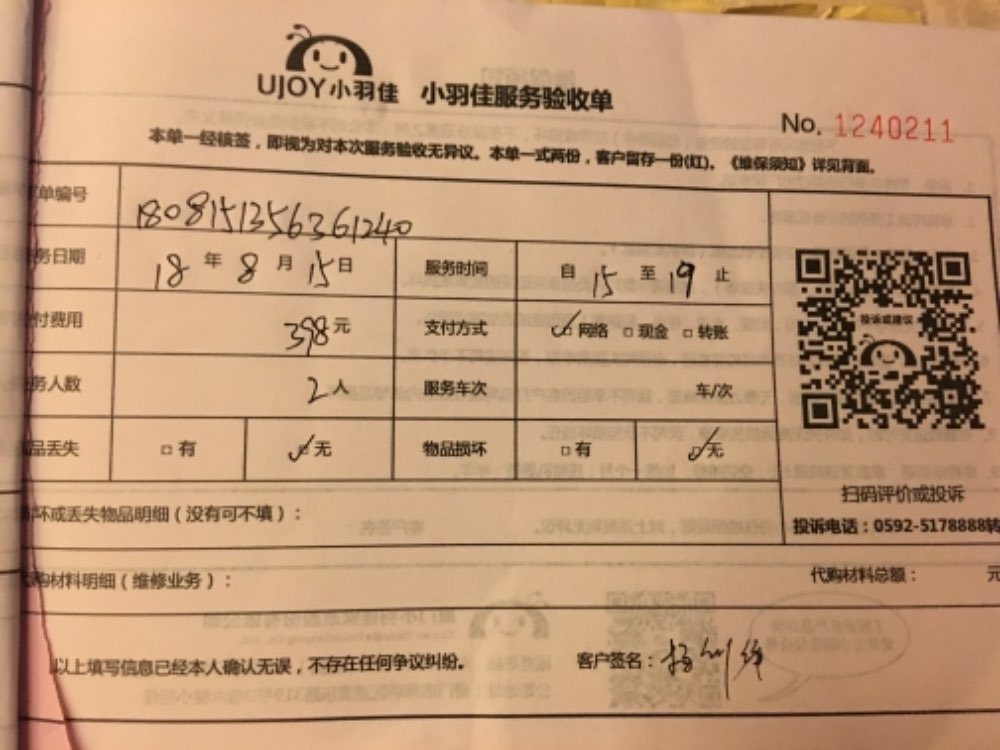 UJOY小羽佳 小羽佳服务验收单
No. 1240211
本单一经核签，即视为对本次服务验收无异议。本单一式两份，客户留存一份(红)。《维保须知》详见背面。
单编号 1808151356361240
务日期 18 年 8 月 15 日 服务时间 自 15 至 19 止
付费用 398 元 支付方式 ☑网络 □现金 □转账
务人数 2 人 服务车次 车/次
品丢失 □有 ☑无 物品损坏 □有 ☑无
投诉或建议
扫码评价或投诉
投诉电话：0592-5178888转
坏或丢失物品明细（没有可不填）：
代购材料明细（维修业务）： 代购材料总额： 元
以上填写信息已经本人确认无误，不存在任何争议纠纷。 客户签名：